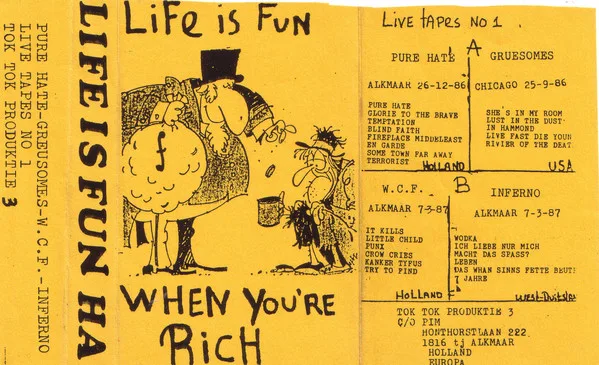 PURE HATE-GREUSOMES-W.C.F.-INFERNO
LIVE TAPES NO 1
TOK TOK PRODUKTIE 3
LIFE IS FUN HA
LiFe is FuN
f
WHEN YOU'RE
RICH
LiVe TAPes NO 1.
A
PURE HATE
GRUESOMES
ALKMAAR 26-12-86
CHICAGO 25-9-86
PURE HATE
GLORIE TO THE BRAVE
TEMPTATION
BLIND FAITH
FIREPLACE MIDDLEEAST
EN GARDE
SOME TOWN FAR AWAY
TERRORIST
HOLLAND
SHE'S IN MY ROOM
LUST IN THE DUST
IN HAMMOND
LIVE FAST DIE YOUN
RIVIER OF THE DEAT
USA
B
W.C.F.
INFERNO
ALKMAAR 7-3-87
ALKMAAR 7-3-87
IT KILLS
LITTLE CHILD
PUNX
CROW CRIES
KANKER TYFUS
TRY TO FIND
HOLLAND
WODKA
ICH LIEBE NUR MICH
MACHT DAS SPASS?
LEBEN
DAS WHAN SINNS FETTE BEUTE
7 JAHRE
TOK TOK PRODUKTIE 3
C/O PIM
HONTHORSTLAAN 222
1816 tj ALKMAAR
HOLLAND
EUROPA